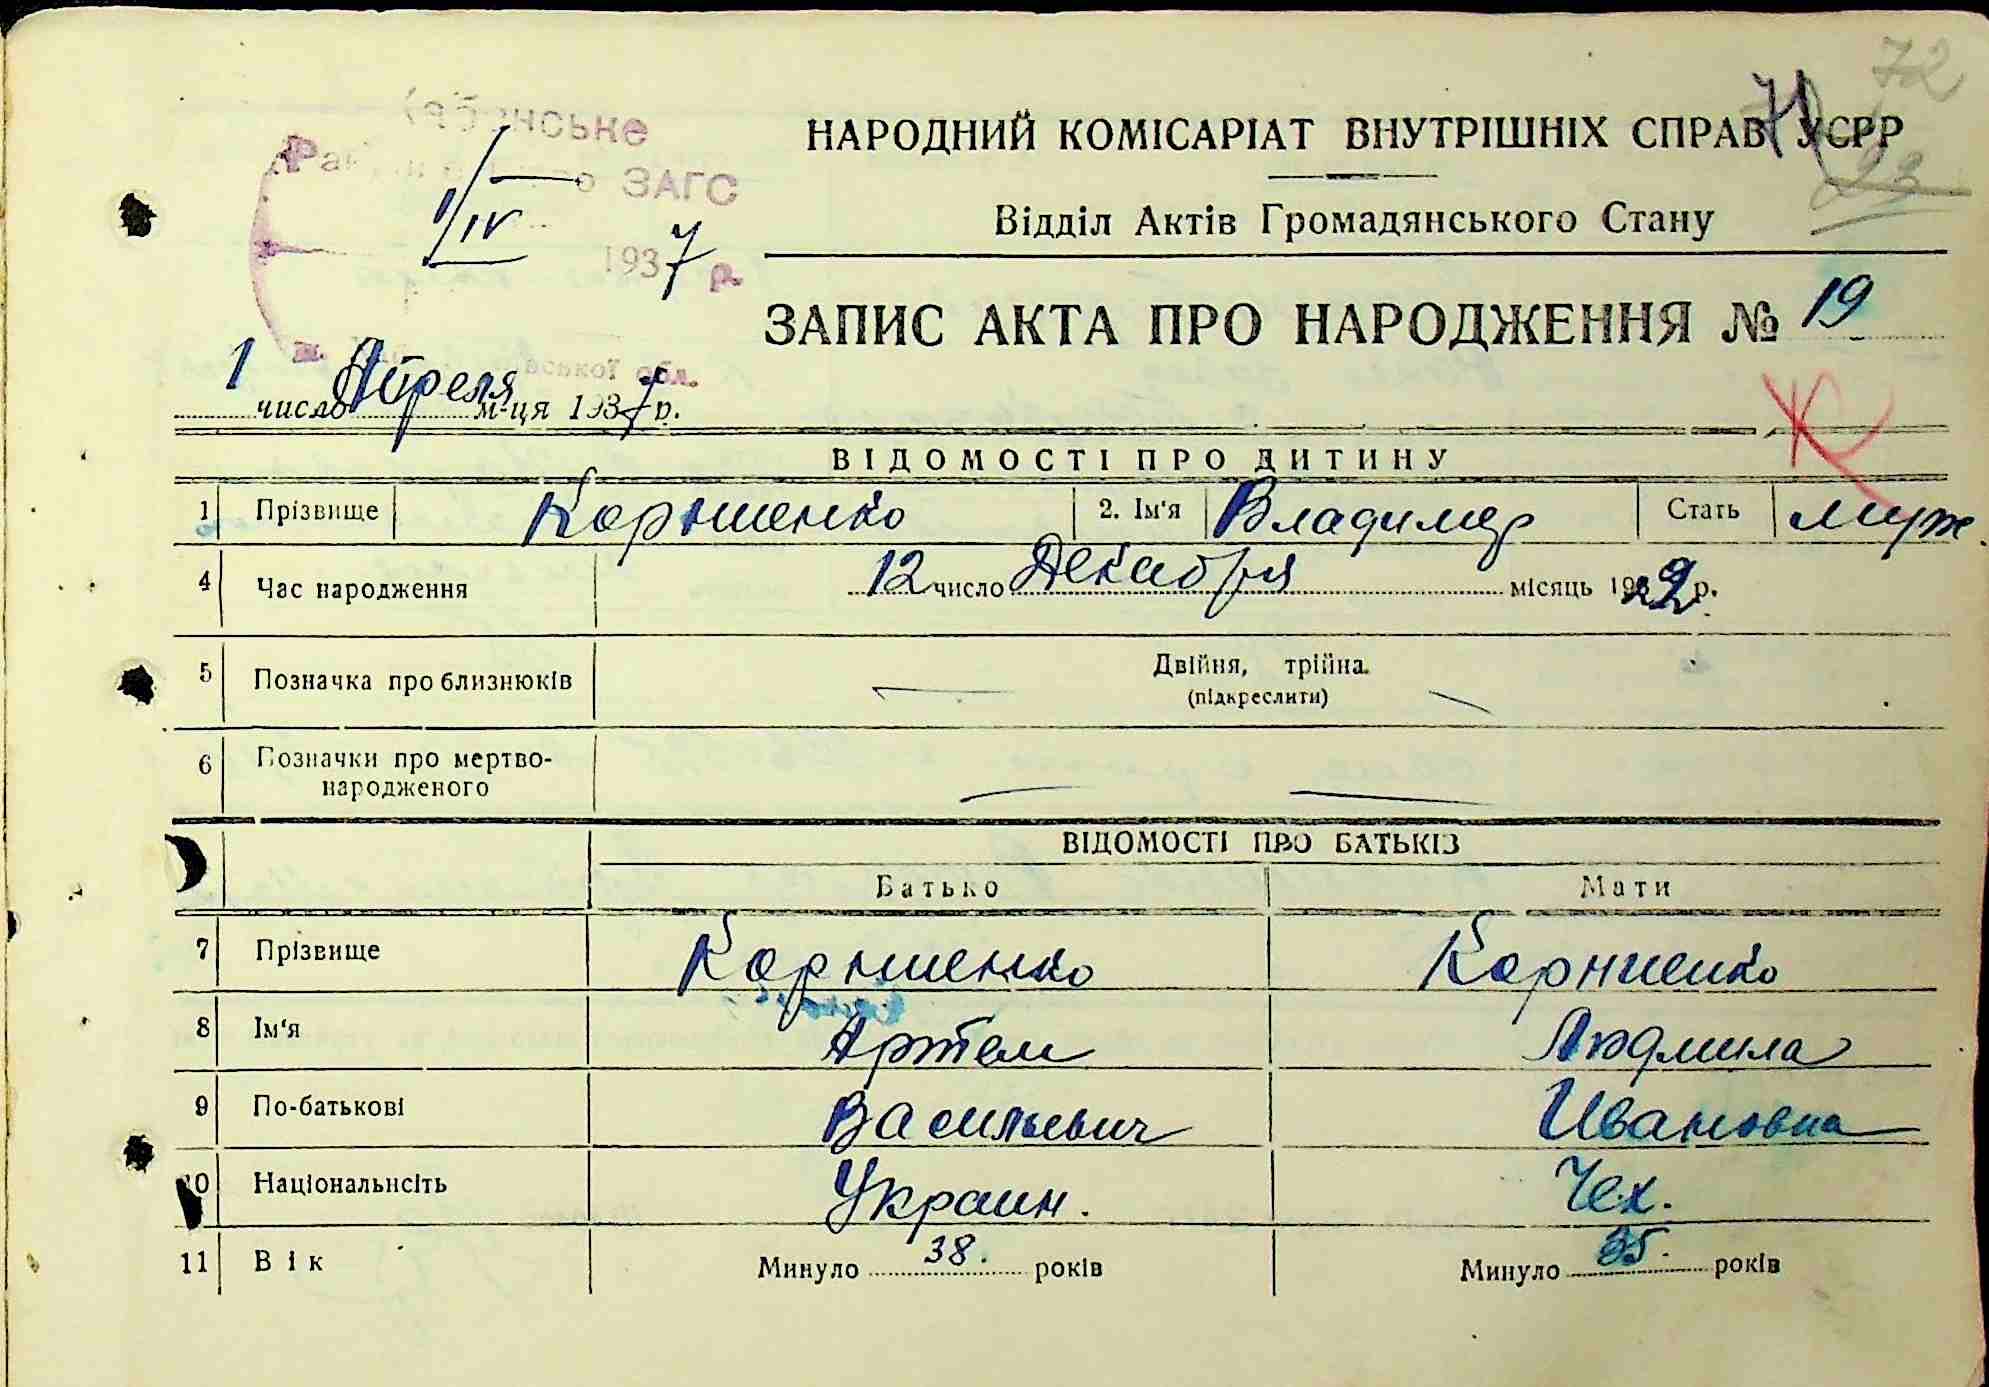 72
71
НАРОДНИЙ КОМІСАРІАТ ВНУТРІШНІХ СПРАВ УСРР
23
ЗАГС
1/IV 1937 р.
Відділ Актів Громадянського Стану
ЗАПИС АКТА ПРО НАРОДЖЕННЯ № 19
обл.
1 число Апреля м-ця 1937 р.
К
ВІДОМОСТІ ПРО ДИТИНУ
1 Прізвище Корниенко 2. Ім'я Владимер Стать муж.
4 Час народження 12 число Декабря місяць 1929 р.
5 Позначка про близнюків Двійня, трійня.
(підкреслити)
6 Позначки про мертво-
народженого
ВІДОМОСТІ ПРО БАТЬКІВ
Батько Мати
7 Прізвище Корниенко Корниенко
8 Ім'я Артем Людмила
9 По-батькові Васильевич Ивановна
10 Національнсіть Украин. Чех.
11 Вік Минуло 38. років Минуло 35. років